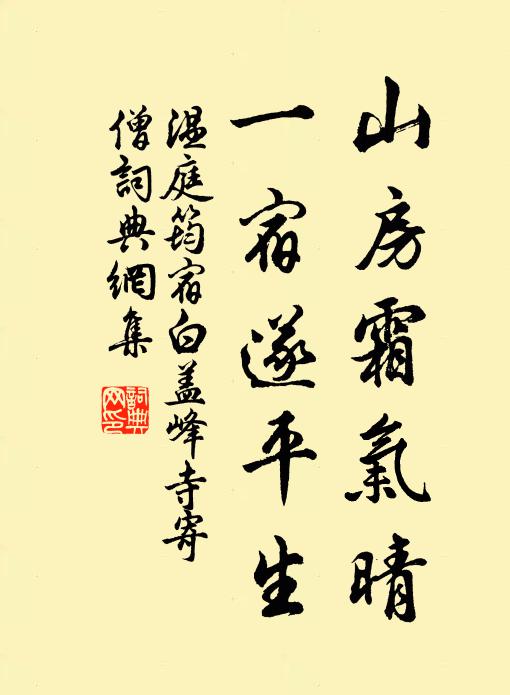 山房霜氣晴
一宿遂平生
温庭筠宿白盖峰寺寄
僧詞典網集
詞典
网印